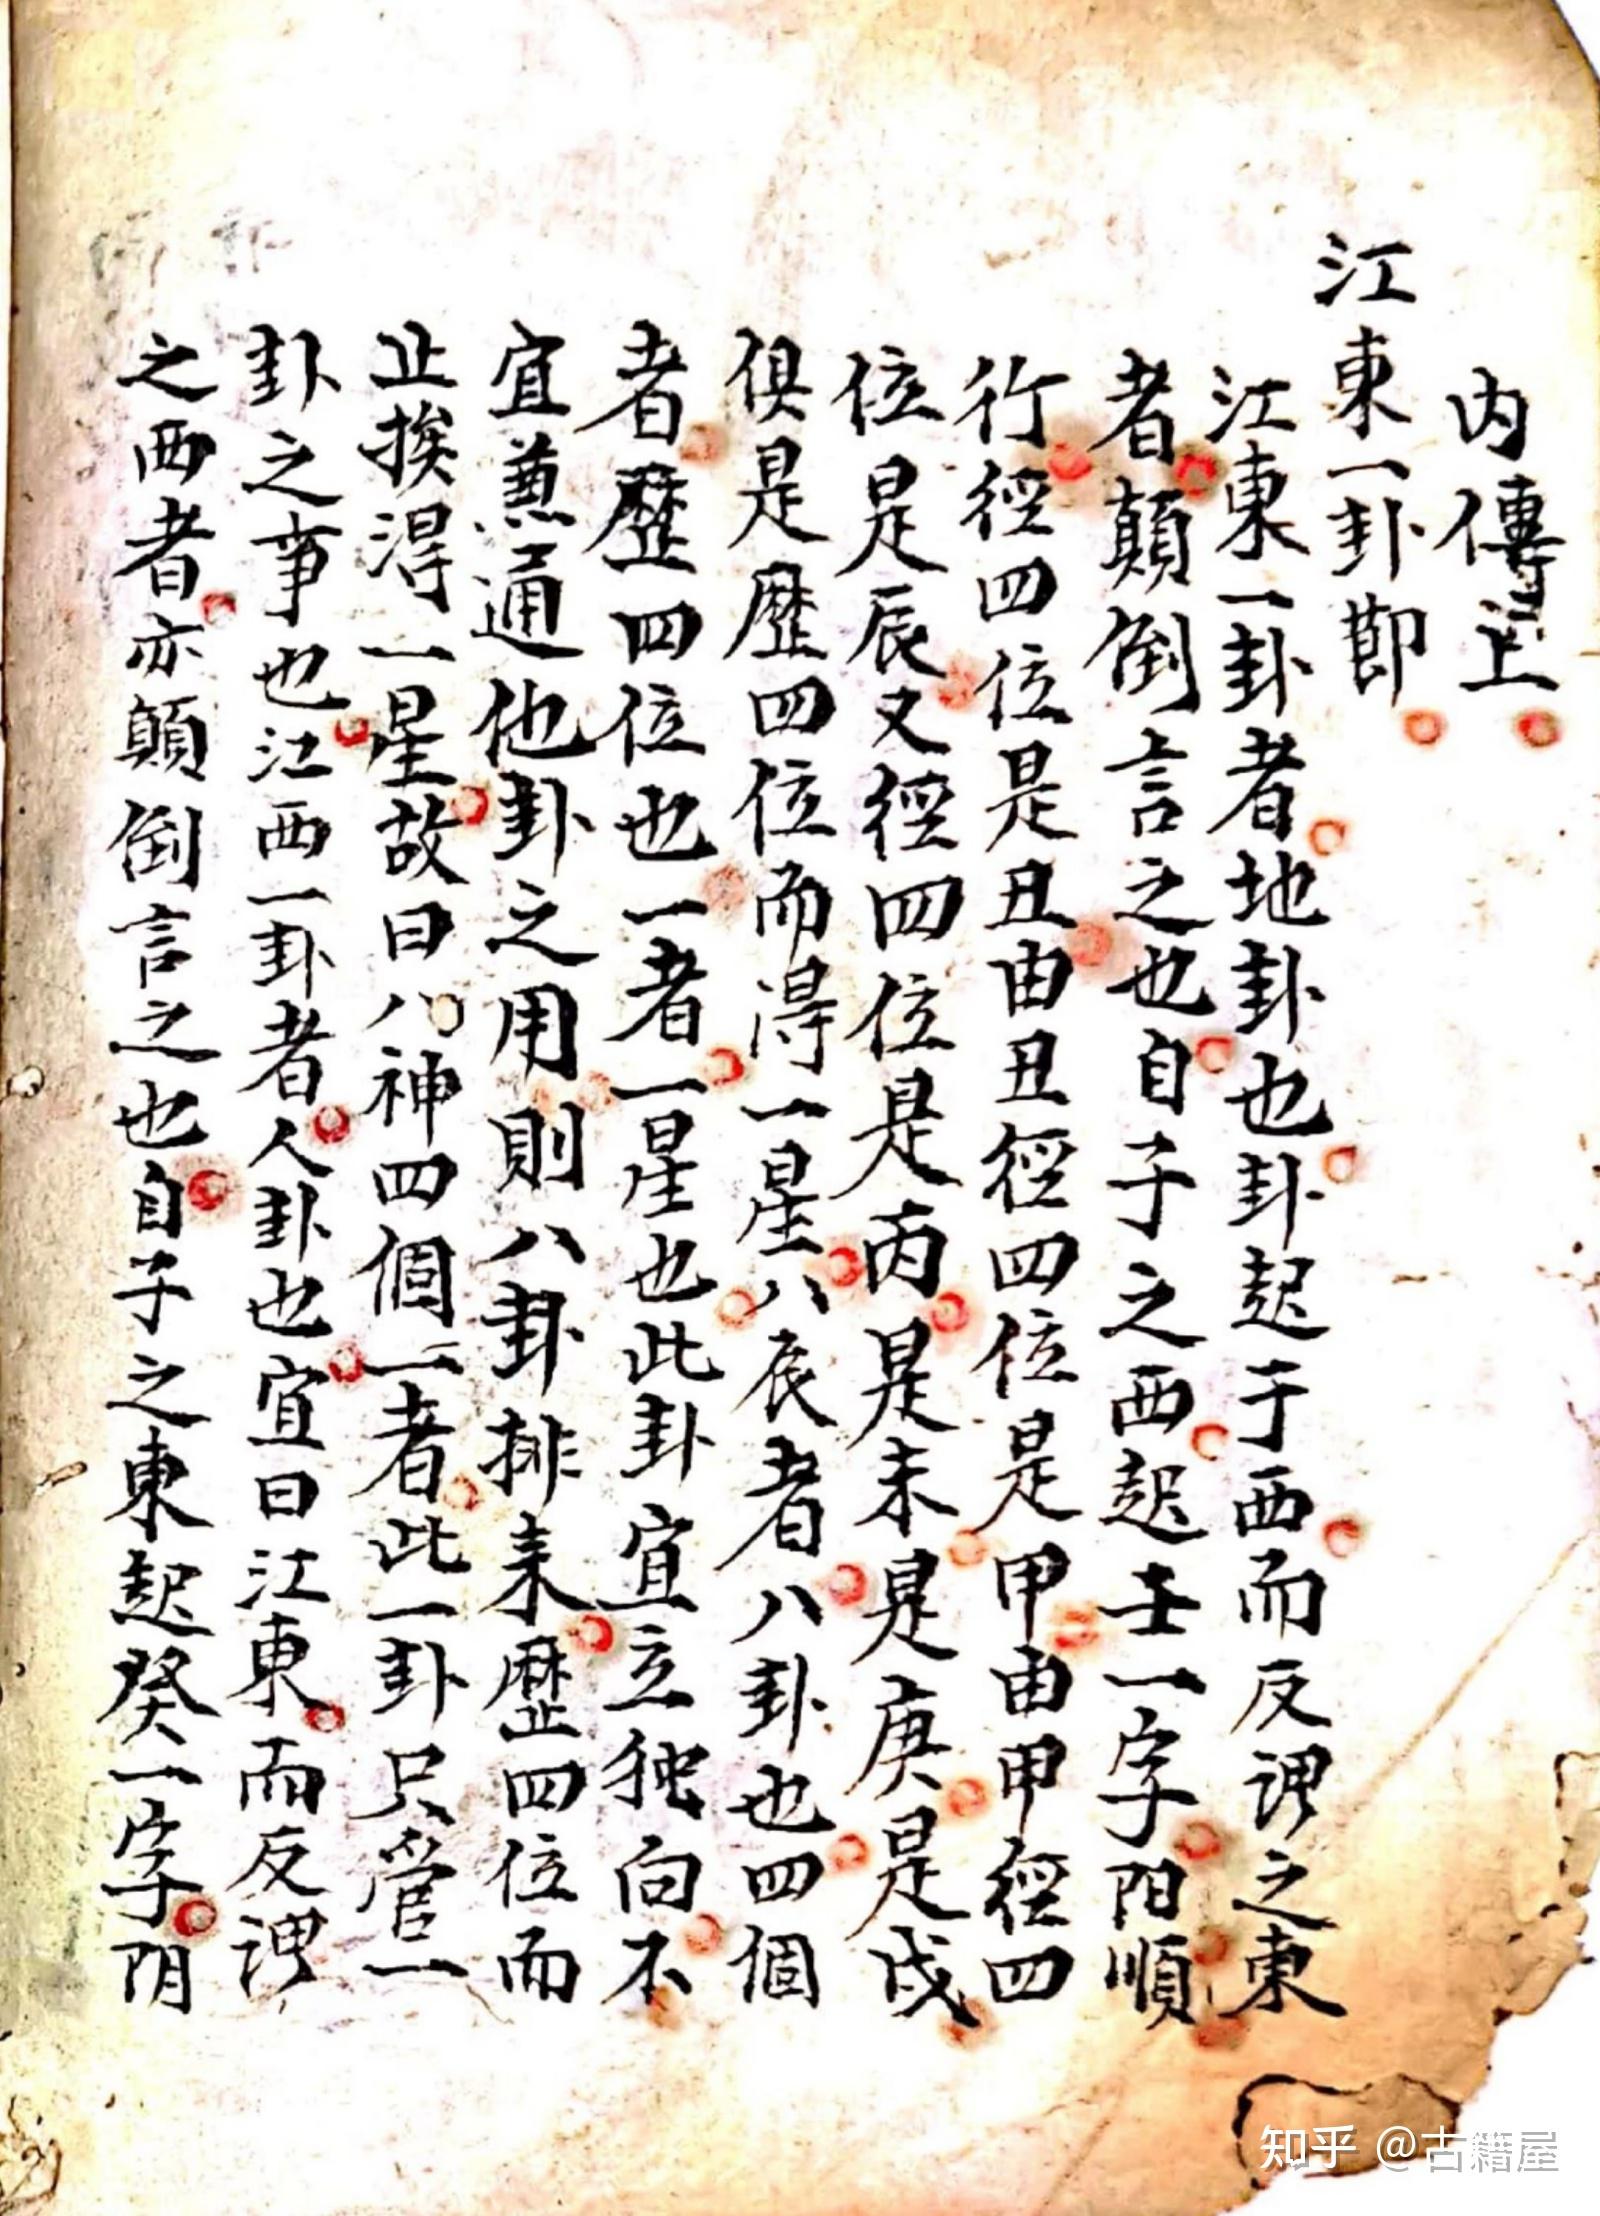 内傳上
江東一卦節
江東一卦者地卦也卦起于西而反謂之東
者顛倒言之也自子之西起壬一字阳順
行徑四位是丑由丑徑四位是甲由甲徑四
位是辰又徑四位是丙是未是庚是戌
俱是歷四位而得一星八辰者八卦也四個
者歷四位也一者一星也此卦宜立独向不
宜兼通他卦之用則八卦排来歷四位而
止挨得一星故曰八神四個一者此一卦只管一
卦之事也江西一卦者人卦也宜曰江東而反謂
之西者亦顛倒言之也自子之東起癸一字阴
知乎 @古籍屋